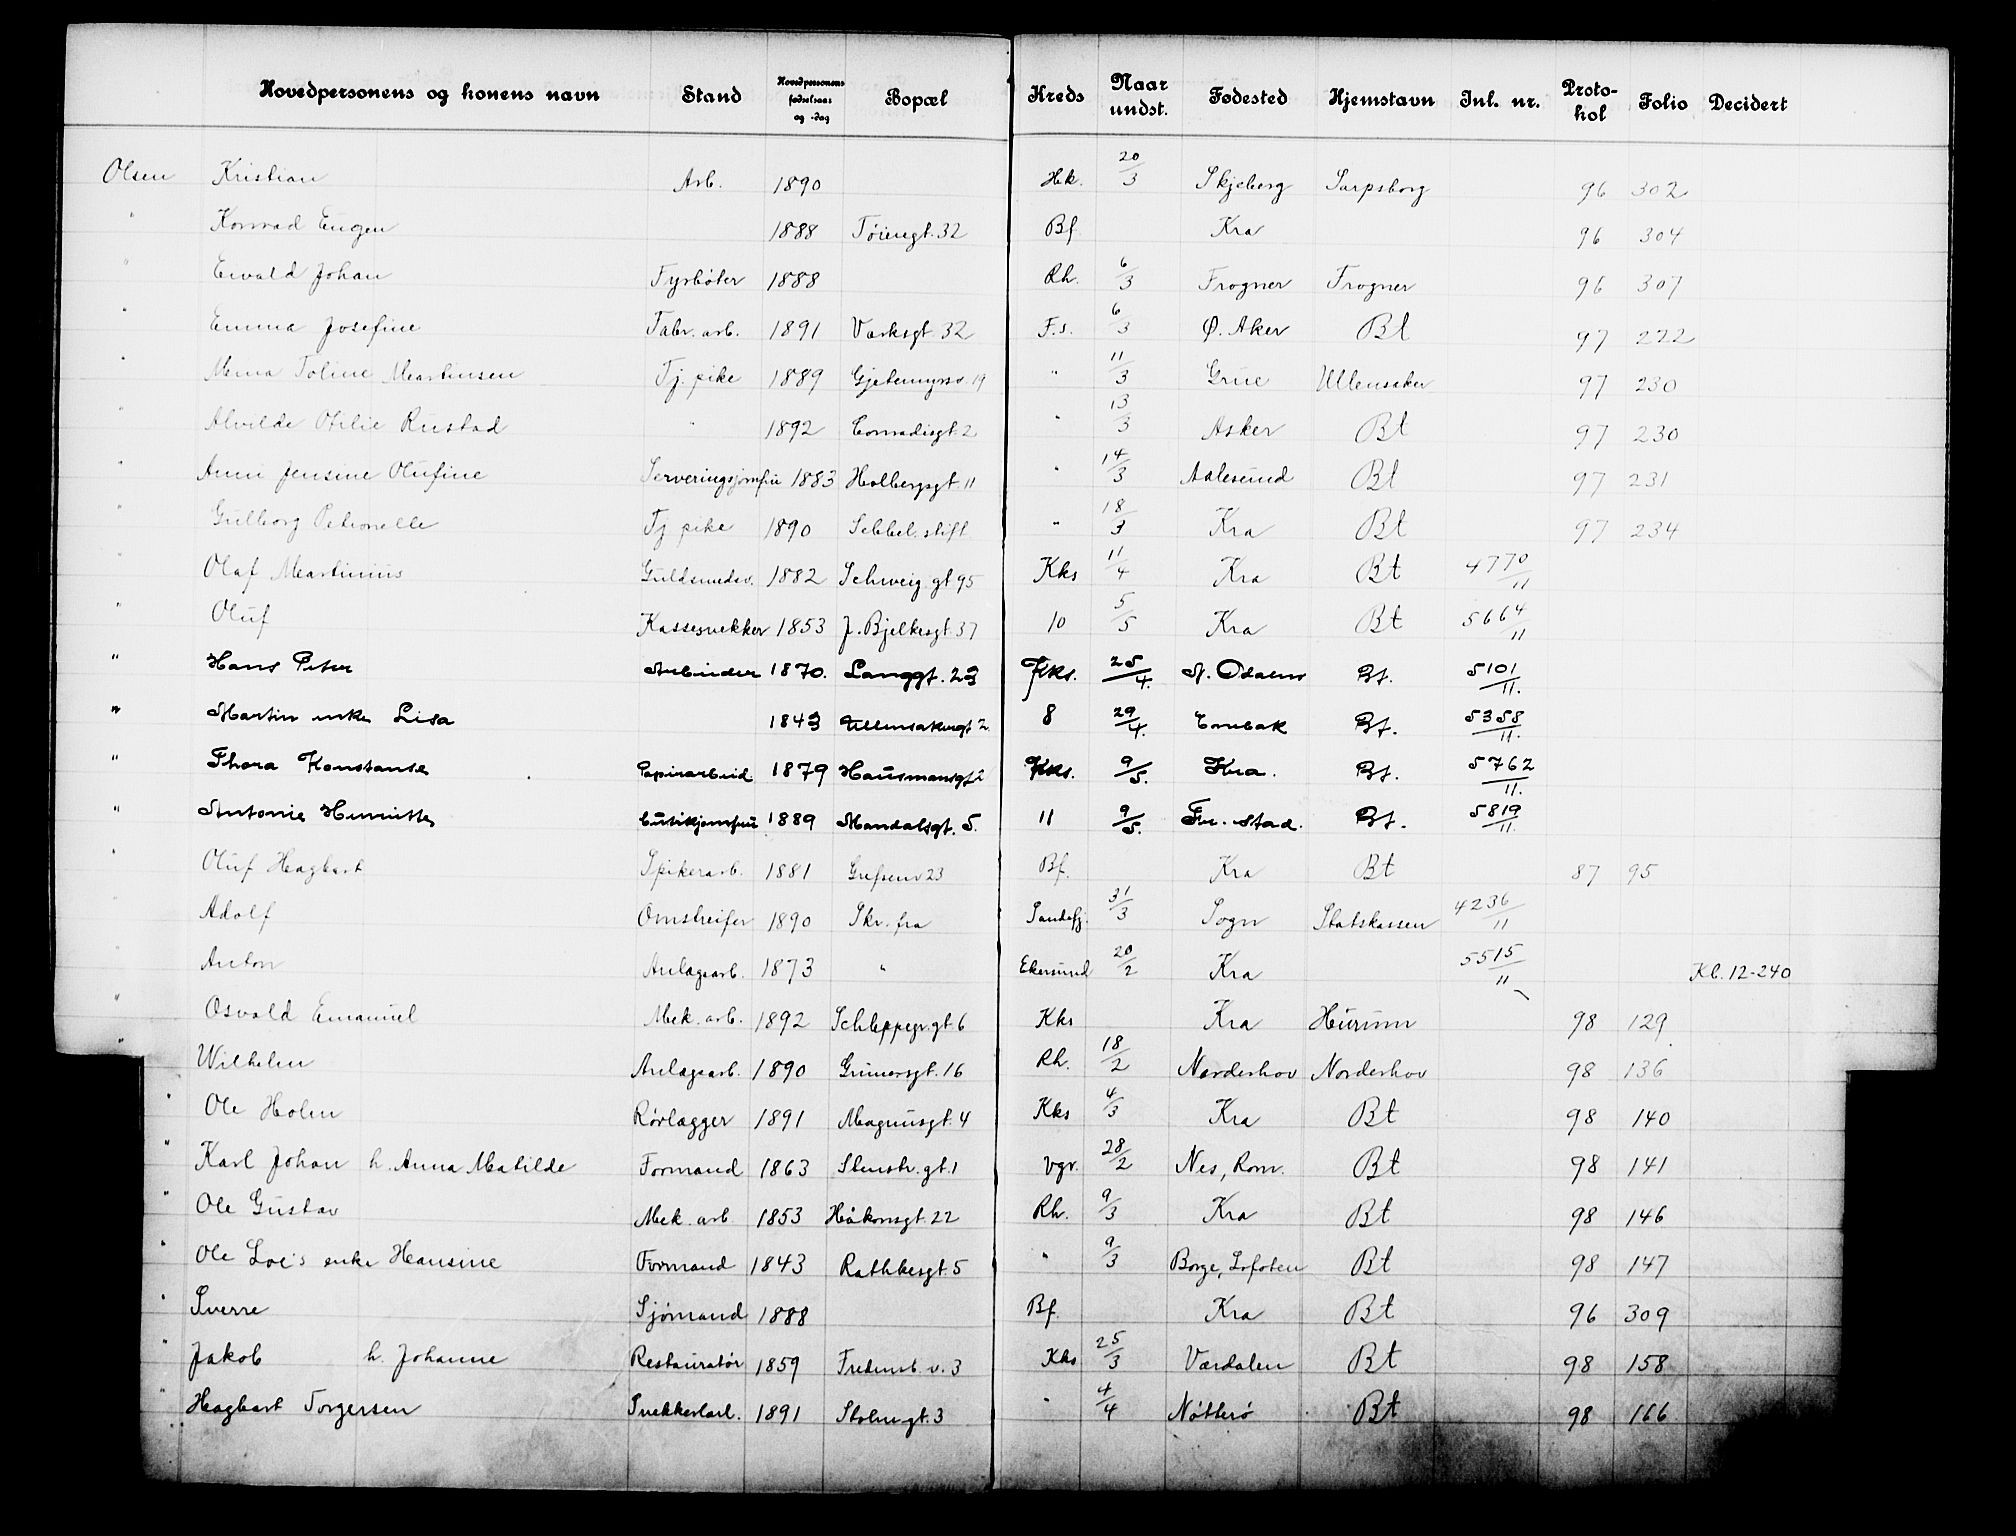 Hovedpersonens og konens navn Stand Hovedpersonens fødselsaar og -dag Bopæl Kreds Naar undst. Fødested Hjemstavn Inl. nr. Protokol Folio Decidert
Olsen Kristian Arb. 1890 Hk. 20/3 Skjeberg Sarpsborg 96 302
" Konrad Eugen 1888 Tøiengt. 32 Bf. Kra 96 304
" Ewald Johan Fyrbøter 1888 Rh. 6/3 Frogner Frogner 96 307
" Emma Josefine Fabr. arb. 1891 Værksgt. 32 F.s. 6/3 Ø. Aker Bt 97 222
" Mina Toline Martinsen Tj. pike 1889 Gjetemyrsv. 19 " 11/3 Grue Ullensaker 97 230
" Alvilde Otilie Rustad " 1892 Conradisgt. 2 " 13/3 Asker Bt 97 230
" Anni Jensine Olufine Serveringsjomfru 1883 Holbergsgt. 11 " 14/3 Aalesund Bt 97 231
" Gulborg Petronelle Tj pike 1890 Sebbel. stift " 18/3 Kra Bt 97 234
Olaf Martinius Guldsmedsv. 1882 Schweig. gt 95 Kks 11/4 Kra Bt 4770/11
" Oluf Kassesnekker 1853 J. Bjelkesgt. 37 10 5/5 Kra Bt 5664/11
" Hans Peter Arbeider 1870. Langgt. 23 Kks. 25/4. N. Odalen Bt. 5101/11.
" Martin enke Lisa 1843 Ullensakergt 2. 8 29/4. Enebak Bt. 5358/11.
" Thora Konstanse Papirarbeid 1879 Hausmansgt 2 Kks. 9/5. Kra. Bt. 5762/11.
" Antonie Henriette Butikjomfru 1889 Mandalsgt. 5. 11 9/5. Fr. stad. Bt. 5819/11.
" Oluf Hagbart Spikerarb. 1881 Grefsenv 23 Bf. Kra Bt 87 95
" Adolf Omstreifer 1890 Skr. fra Sandefj. 31/3 Sogn Statskassen 4236/11
" Anton Anlægsarb. 1873 " Ekersund 20/2 Kra 5515/11 Kl. 12-240
" Osvald Emanuel Mek. arb. 1892 Schleppegr. gt. 6 Kks Kra Hurum 98 129
" Wilhelm Anlægsarb. 1890 Grünersgt. 16 Rh. 18/2 Norderhov Norderhov 98 136
" Ole Holm Rørlægger 1891 Magnusgt. 4 Kks 4/3 Kra Bt 98 140
" Karl Johan h. Anna Matilde Formand 1863 Stenstr. gt. 1 vgr. 28/2 Nes, Rom. Bt 98 141
" Ole Gustav Mek. arb. 1853 Håkonsgt. 22 Rh. 9/3 Kra Bt 98 146
" Ole Loe's enke Hansine Formand 1843 Rathkesgt. 5 " 9/3 Borge, Lofoten Bt 98 147
" Sverre Sjømand 1888 Bf. Kra Bt 96 309
" Jakob h. Johanne Restauratør 1859 Fredensb. v. 3 Kks 25/3 Værdalen Bt 98 158
" Hagbart Torgersen Snekkerlærl. 1891 Stolm gt. 3 " 4/4 Nøtterø Bt 98 166